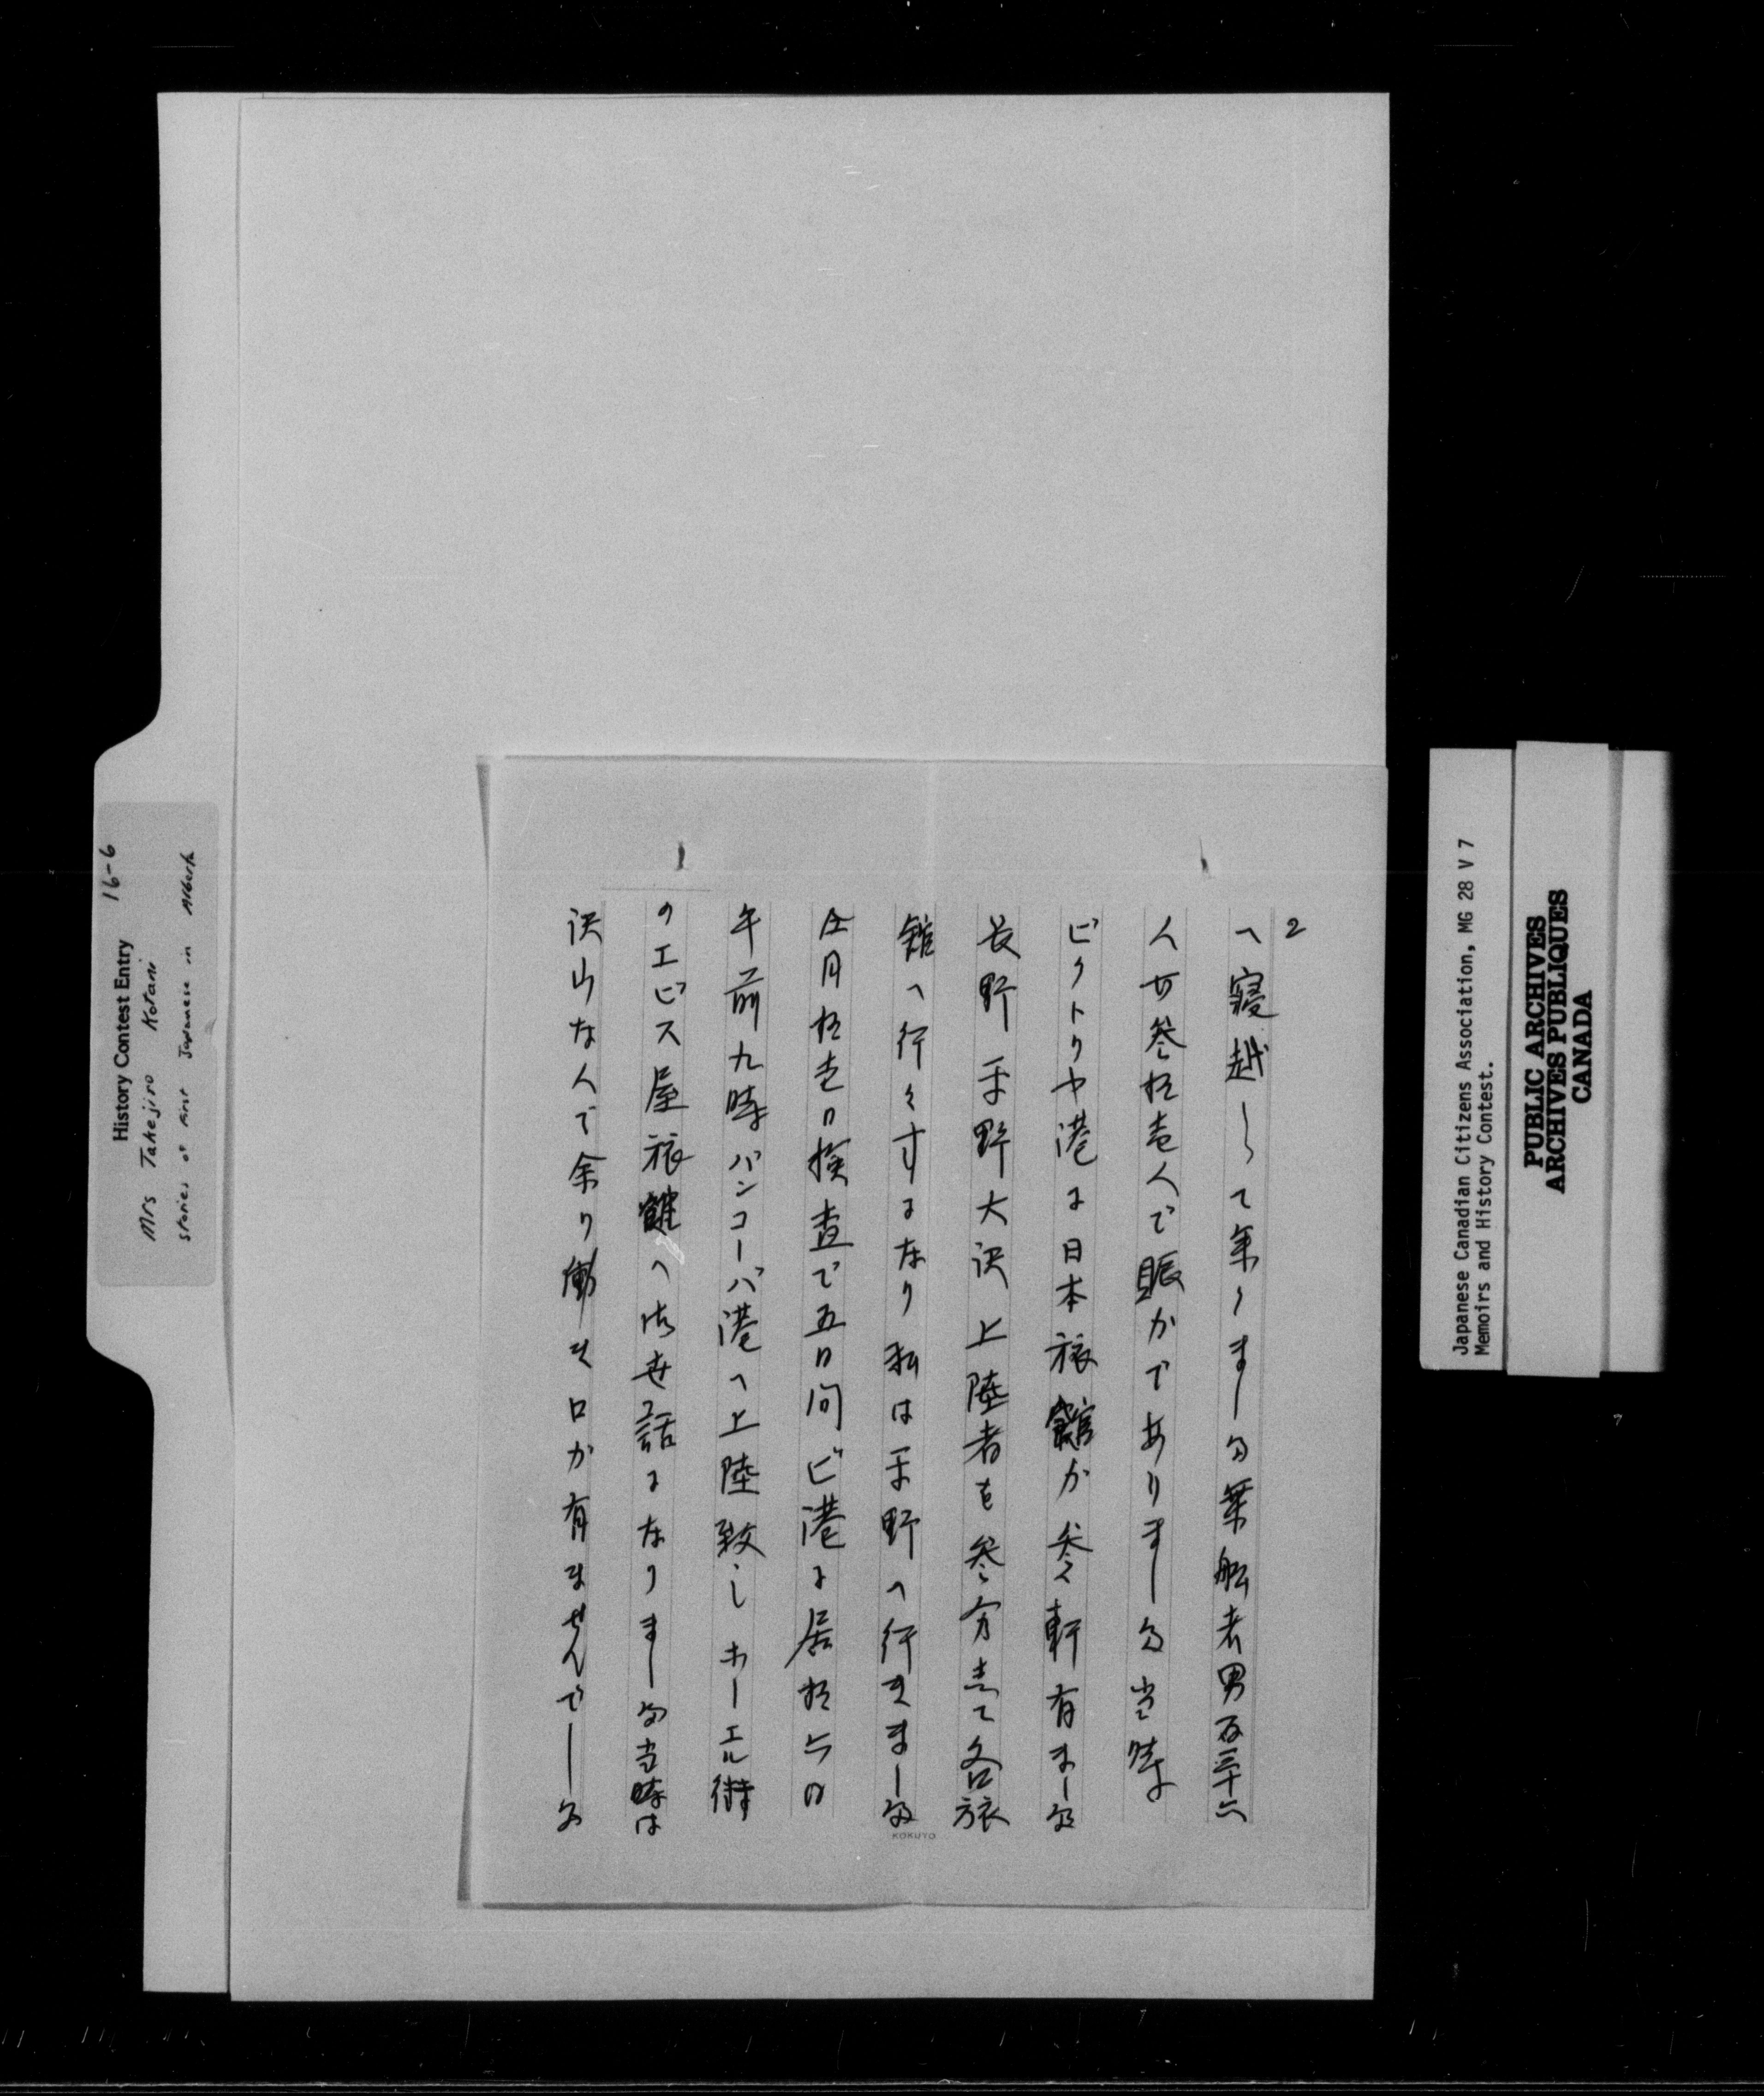 2
へ寝越して来ましな乗船者男百三十六
人女参拾壱人で賑かでありましな当時
ビクトリヤ港に日本旅館か参軒有ましな
長野平野大沢上陸者を参分して各旅
館へ行くすになり私は平野へ行きましな
月拾壱日検査で五日间ビ港に居拾六日
午前九時バンコーバ港へ上陸致しホーエル街
のエビス屋旅館へ御世話になりましな当時は
沢山な人で余り働き口か有ませんでしな
KOKUYO
History Contest Entry 16-6
Mrs Takejiro Kotani
Stories of First Japanese in Alberta
Japanese Canadian Citizens Association, MG 28 V 7
Memoirs and History Contest.
PUBLIC ARCHIVES
ARCHIVES PUBLIQUES
CANADA